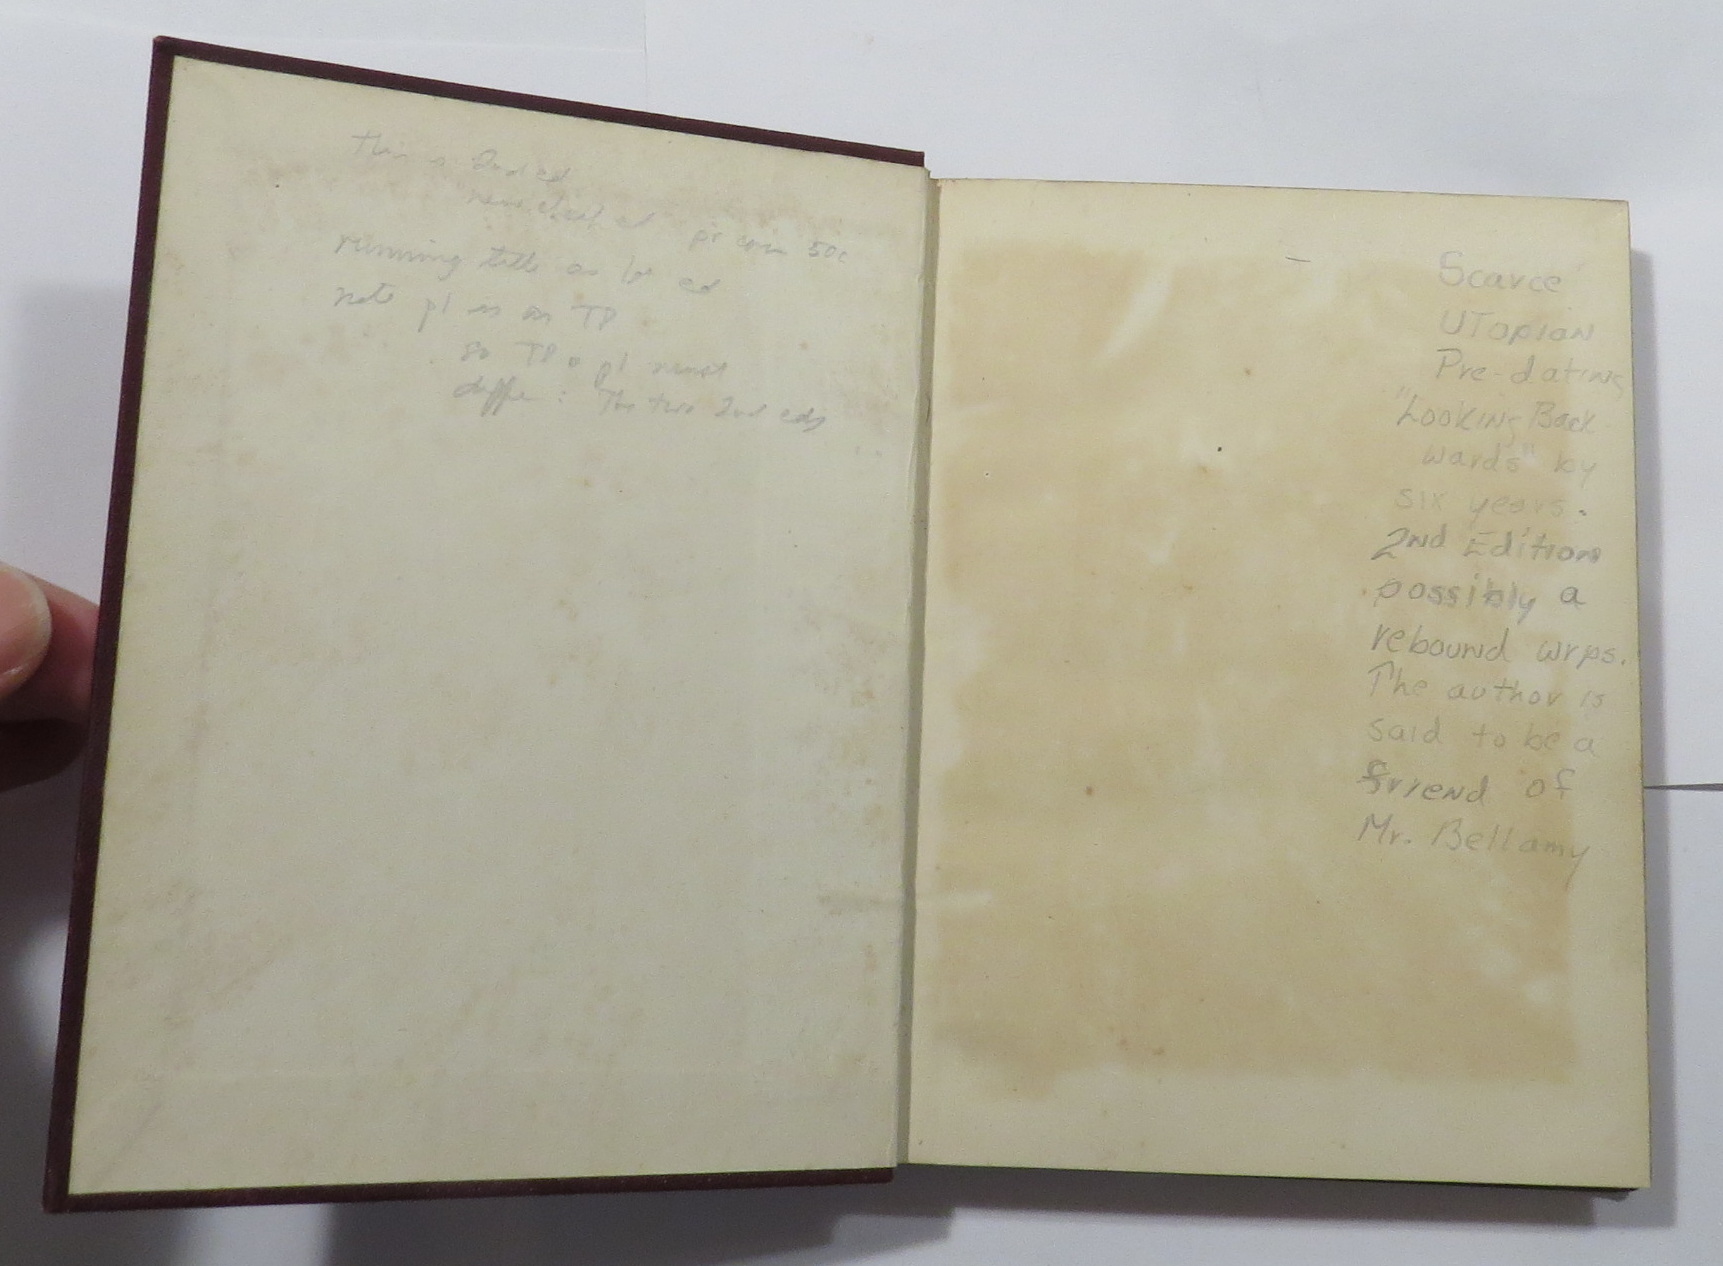 This a 2nd ed
"new cheap ed" pr cover 50c
running title as 1st ed
note pl is on TP
so TP & pl must
differ: The two 2nd eds
Scarce
Utopian
Pre-dating
"Looking Back
wards" by
six years.
2nd Edition
possibly a
rebound wrps.
The author is
said to be a
friend of
Mr. Bellamy